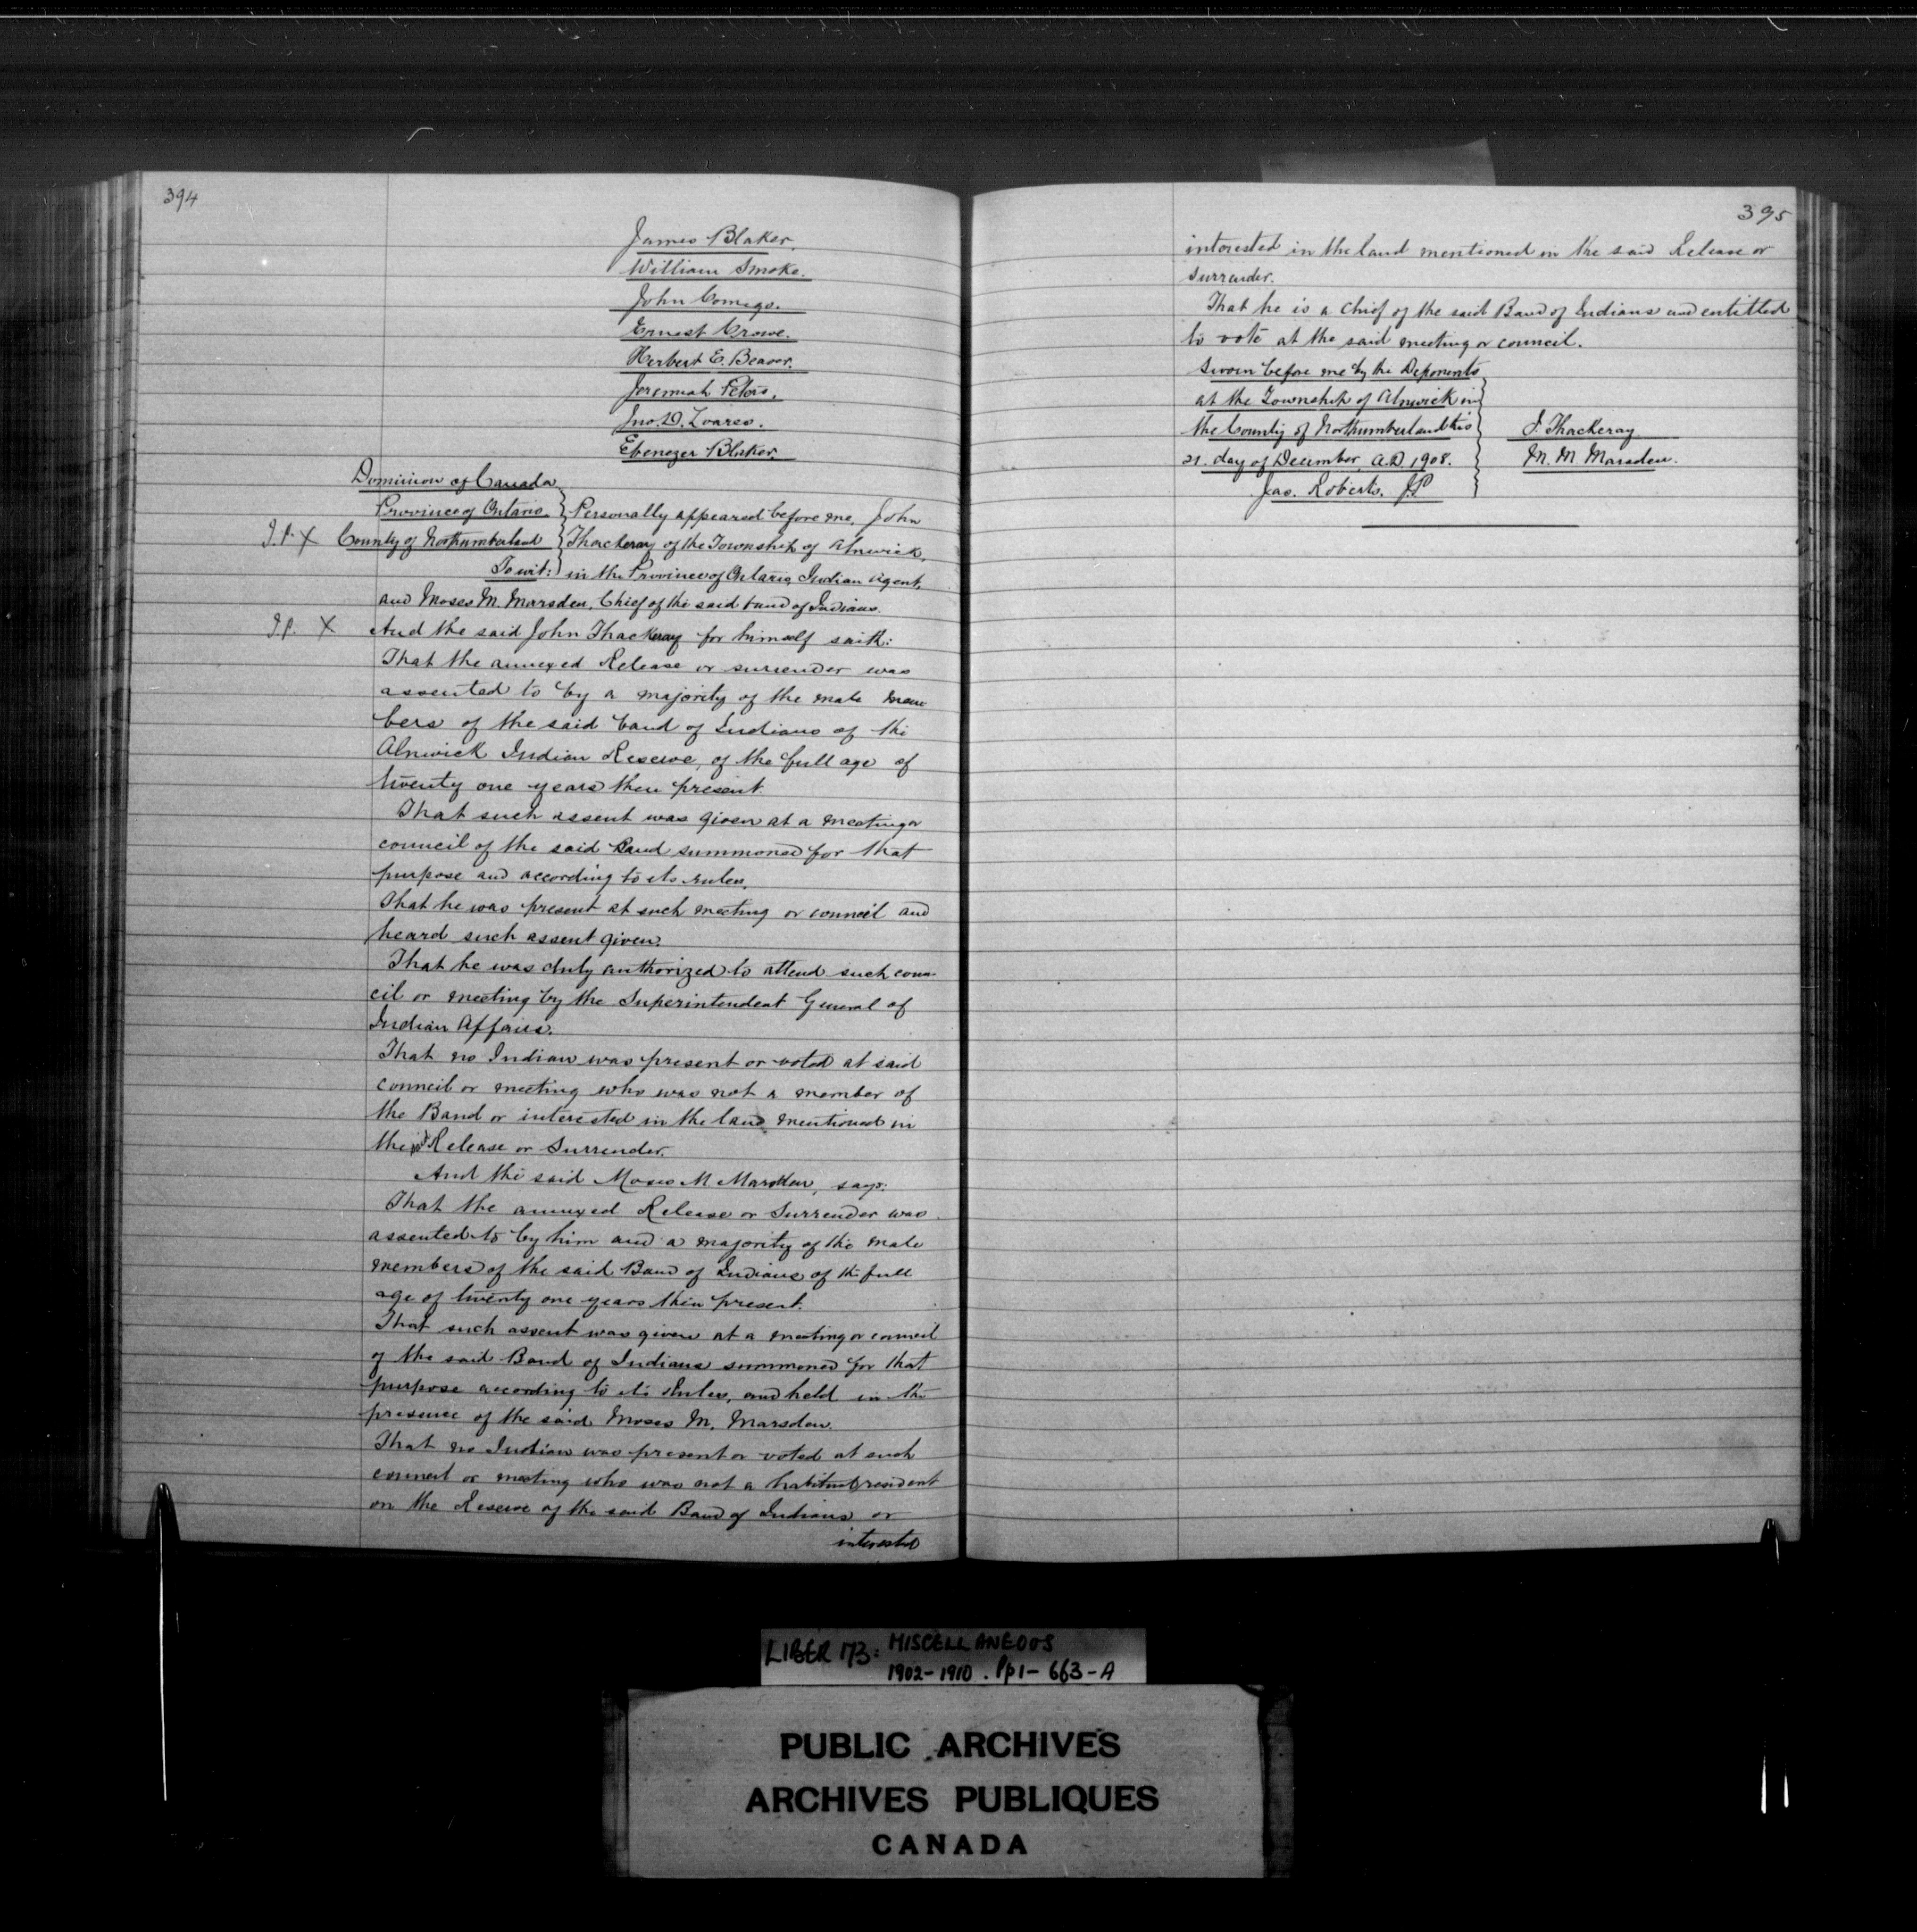 394
James Blaker.
William Smoke.
John Comego.
Ernest Crowe.
Herbert E. Beaver.
Jeremiah Peters.
Jno. D.
Ebenezer Blaker.
Dominion of Canada
Province of Ontario } Personally appeared before me, John
J.P. X County of Northumberland } Thackeray of the Township of Alnwick,
To wit: } in the Province of Ontario, Indian Agent,
and Moses M. Marsden, Chief of the said band of Indians.
J.P. X And the said John Thackeray for himself saith:
That the annexed Release or surrender was
assented to by a majority of the male mem
bers of the said band of Indians of the
Alnwick Indian Reserve, of the full age of
twenty one years then present.
That such assent was given at a meeting or
council of the said Band summoned for that
purpose and according to its rules.
That he was present at such meeting or council and
heard such assent given.
That he was duly authorized to attend such coun-
cil or meeting by the Superintendent General of
Indian Affairs.
That no Indian was present or voted at said
council or meeting who was not a member of
the Band or interested in the land mentioned in
the said Release or Surrender.
And the said Moses M Marsden, says:
That the annexed Release or Surrender was
assented to by him and a majority of the male
members of the said Band of Indians of the full
age of twenty one years then present.
That such assent was given at a meeting or council
of the said Band of Indians summoned for that
purpose according to its Rules, and held in the
presence of the said Moses M. Marsden.
That no Indian was present or voted at such
council or meeting who was not a habitual resident
on the Reserve of the said Band of Indians or
interested
395
interested in the land mentioned in the said Release or
Surrender.
That he is a Chief of the said Band of Indians and entitled
to vote at the said meeting or council.
Sworn before me by the Deponents
at the Township of Alnwick in
the County of Northumberland this } J. Thackeray
21. day of December, A.D. 1908. } M. M. Marsden.
Jas. Roberts. J.P
LIBER 173: MISCELLANEOUS
1902-1910. Pp1-663-A
PUBLIC ARCHIVES
ARCHIVES PUBLIQUES
CANADA